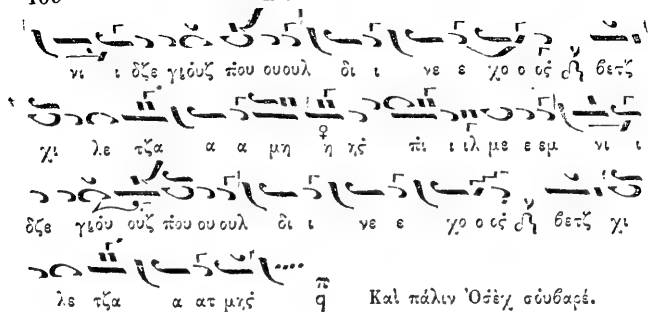 νι ι δζε γιοὺζ ποὺ ουουλ δι ι νε ε χο ο ος βετζ
χι λε τζα α α μη η ης πι ι ιλ με ε εμ νι ι
δζε γιοὺ ουζ ποὺ ου ουλ δι ι νε ε χο ο ος βετζ χι
λε τζα α ατ μης Καὶ πάλιν Ὀσὲχ σουβαρέ.